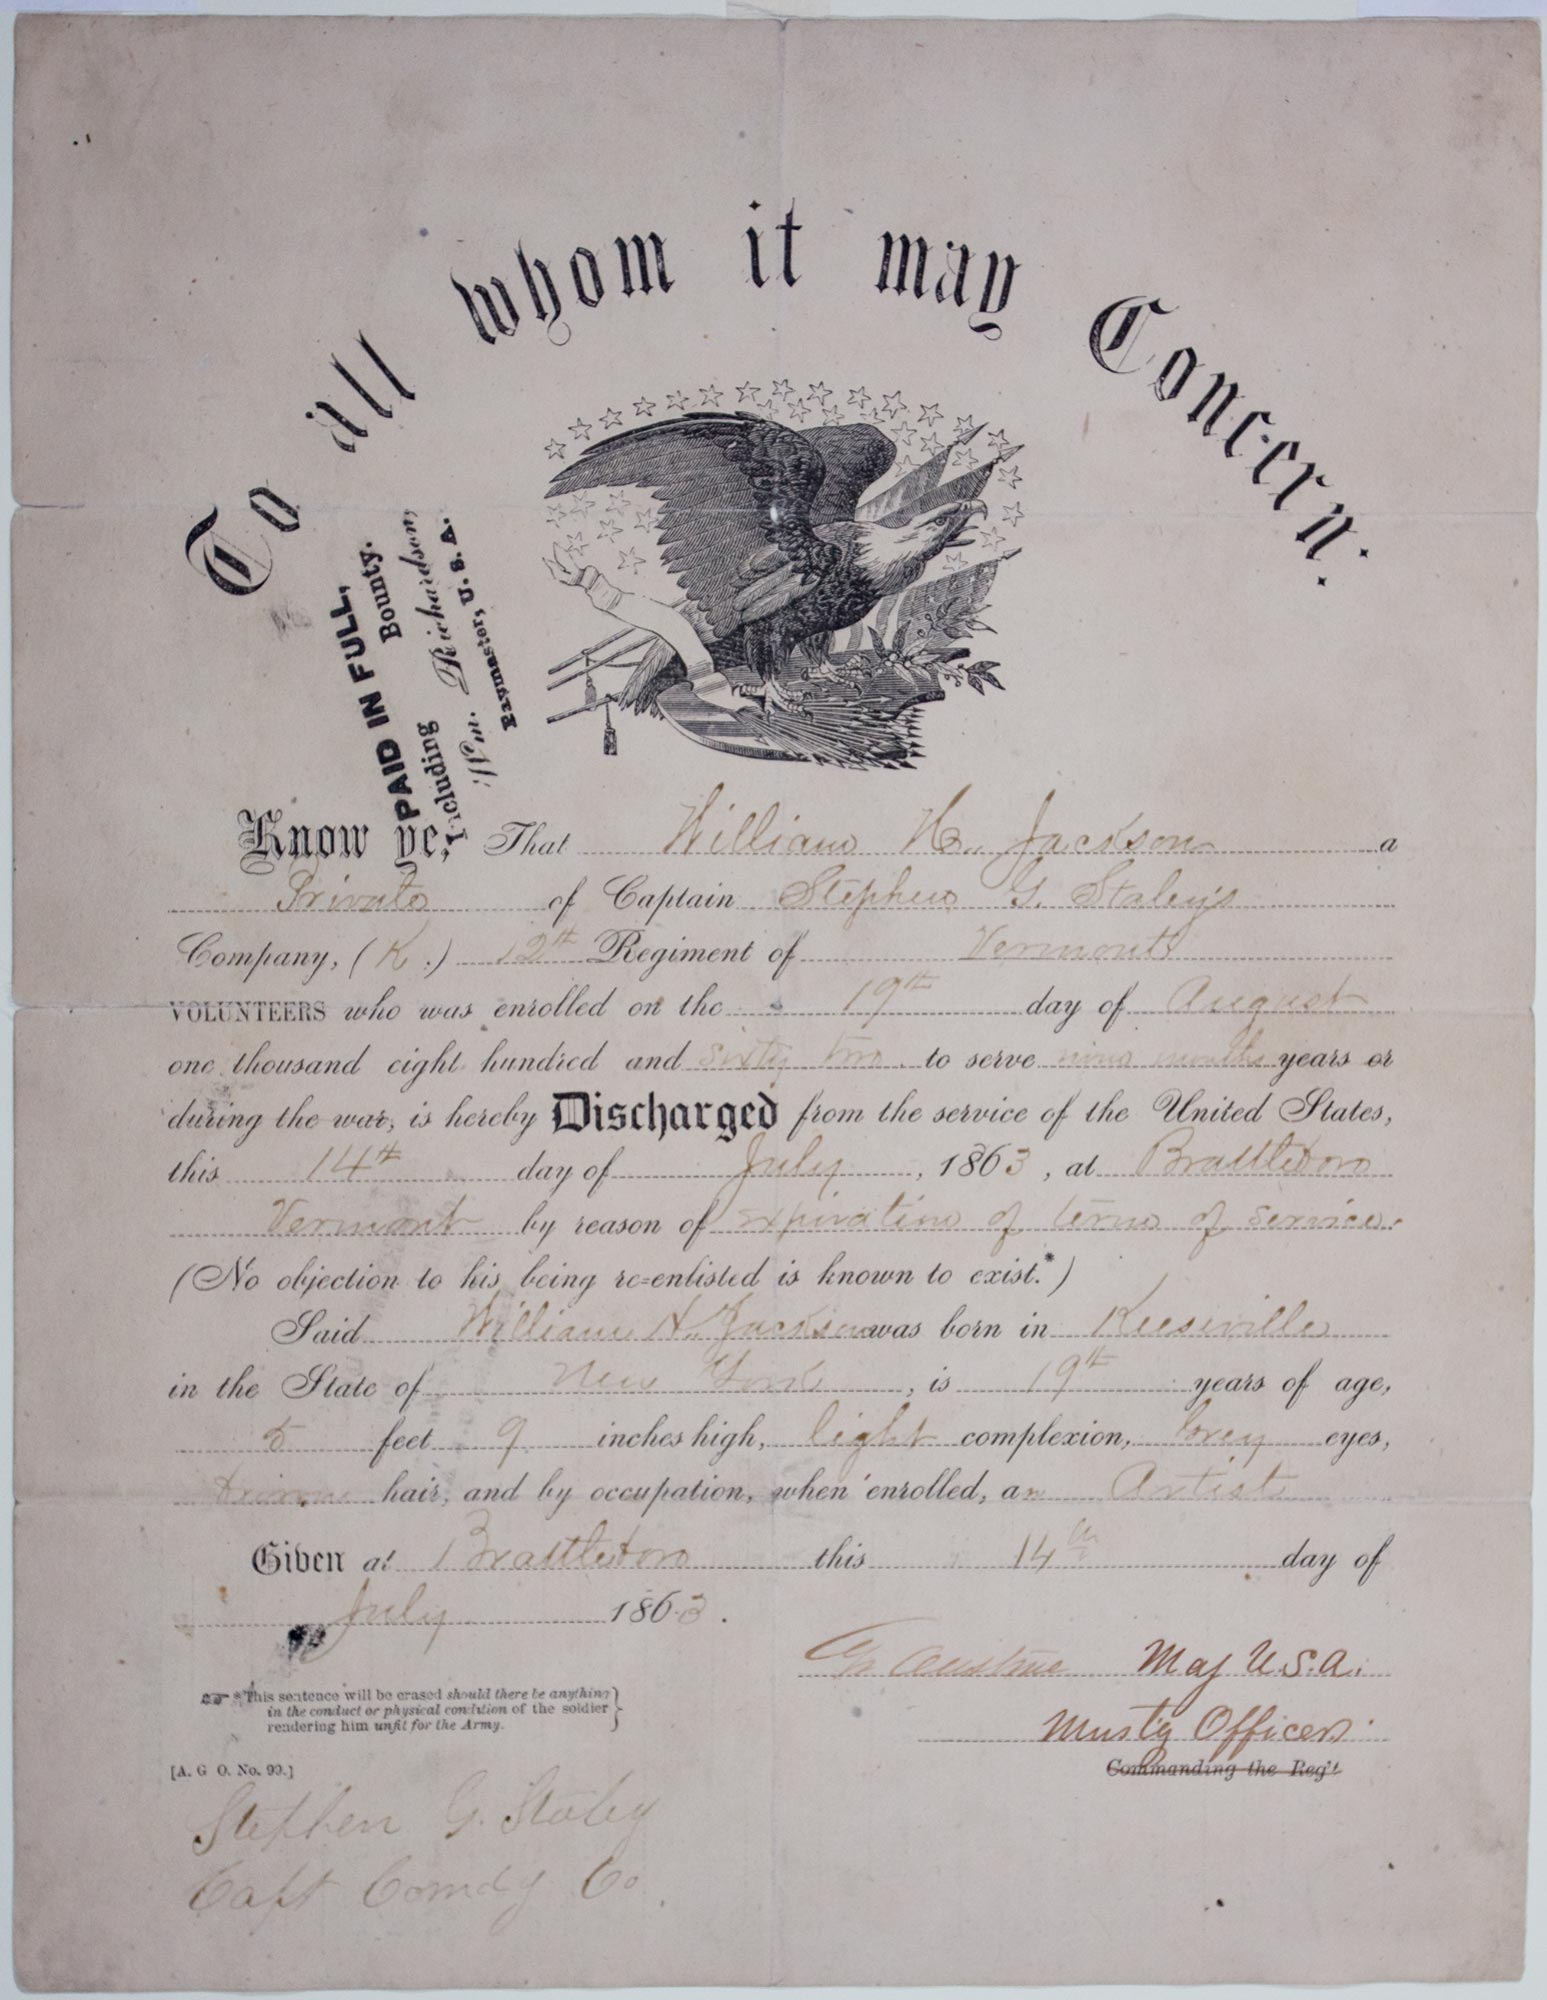 To all whom it may Concern:
PAID IN FULL,
Including Bounty.
Wm. Richardson,
Paymaster, U. S. A.
Know ye, That William H. Jackson a
Private of Captain Stephen G. Staley's
Company, (K.) 12th Regiment of Vermont
VOLUNTEERS who was enrolled on the 19th day of August
one thousand eight hundred and sixty two to serve nine months years or
during the war, is hereby Discharged from the service of the United States,
this 14th day of July, 1863, at Brattleboro
Vermont by reason of expiration of term of service.
(No objection to his being re-enlisted is known to exist.*)
Said William H. Jackson was born in Keeseville
in the State of New York, is 19th years of age,
5 feet 9 inches high, light complexion, Grey eyes,
hair, and by occupation, when enrolled, an Artist
Given at Brattleboro this 14th day of
July 1863.
Austine Maj U.S.A.
Mustg Officer.
Commanding the Reg't
*This sentence will be erased should there be anything
in the conduct or physical condition of the soldier
rendering him unfit for the Army.
[A. G. O. No. 99.]
Stephen G. Staley
Capt Comdg Co.